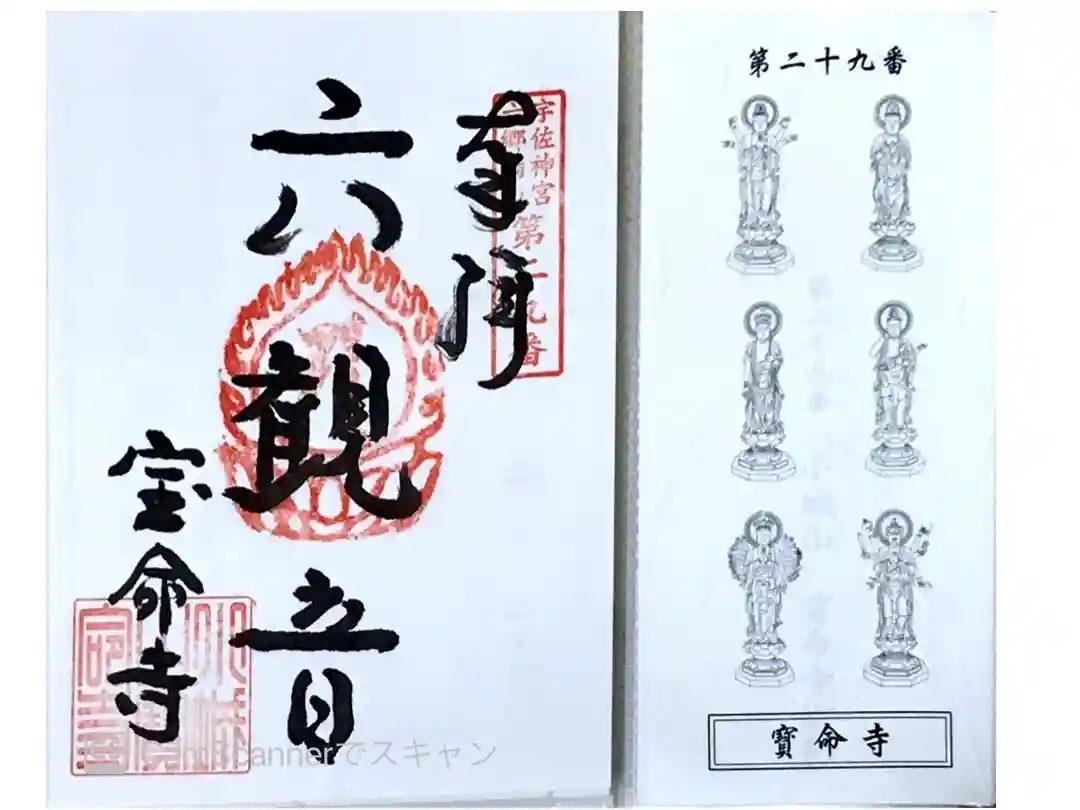 奉拝
宇佐神宮
六郷満山
第二九番
六観音
宝命寺
CamScannerでスキャン
第二十九番
寶命寺